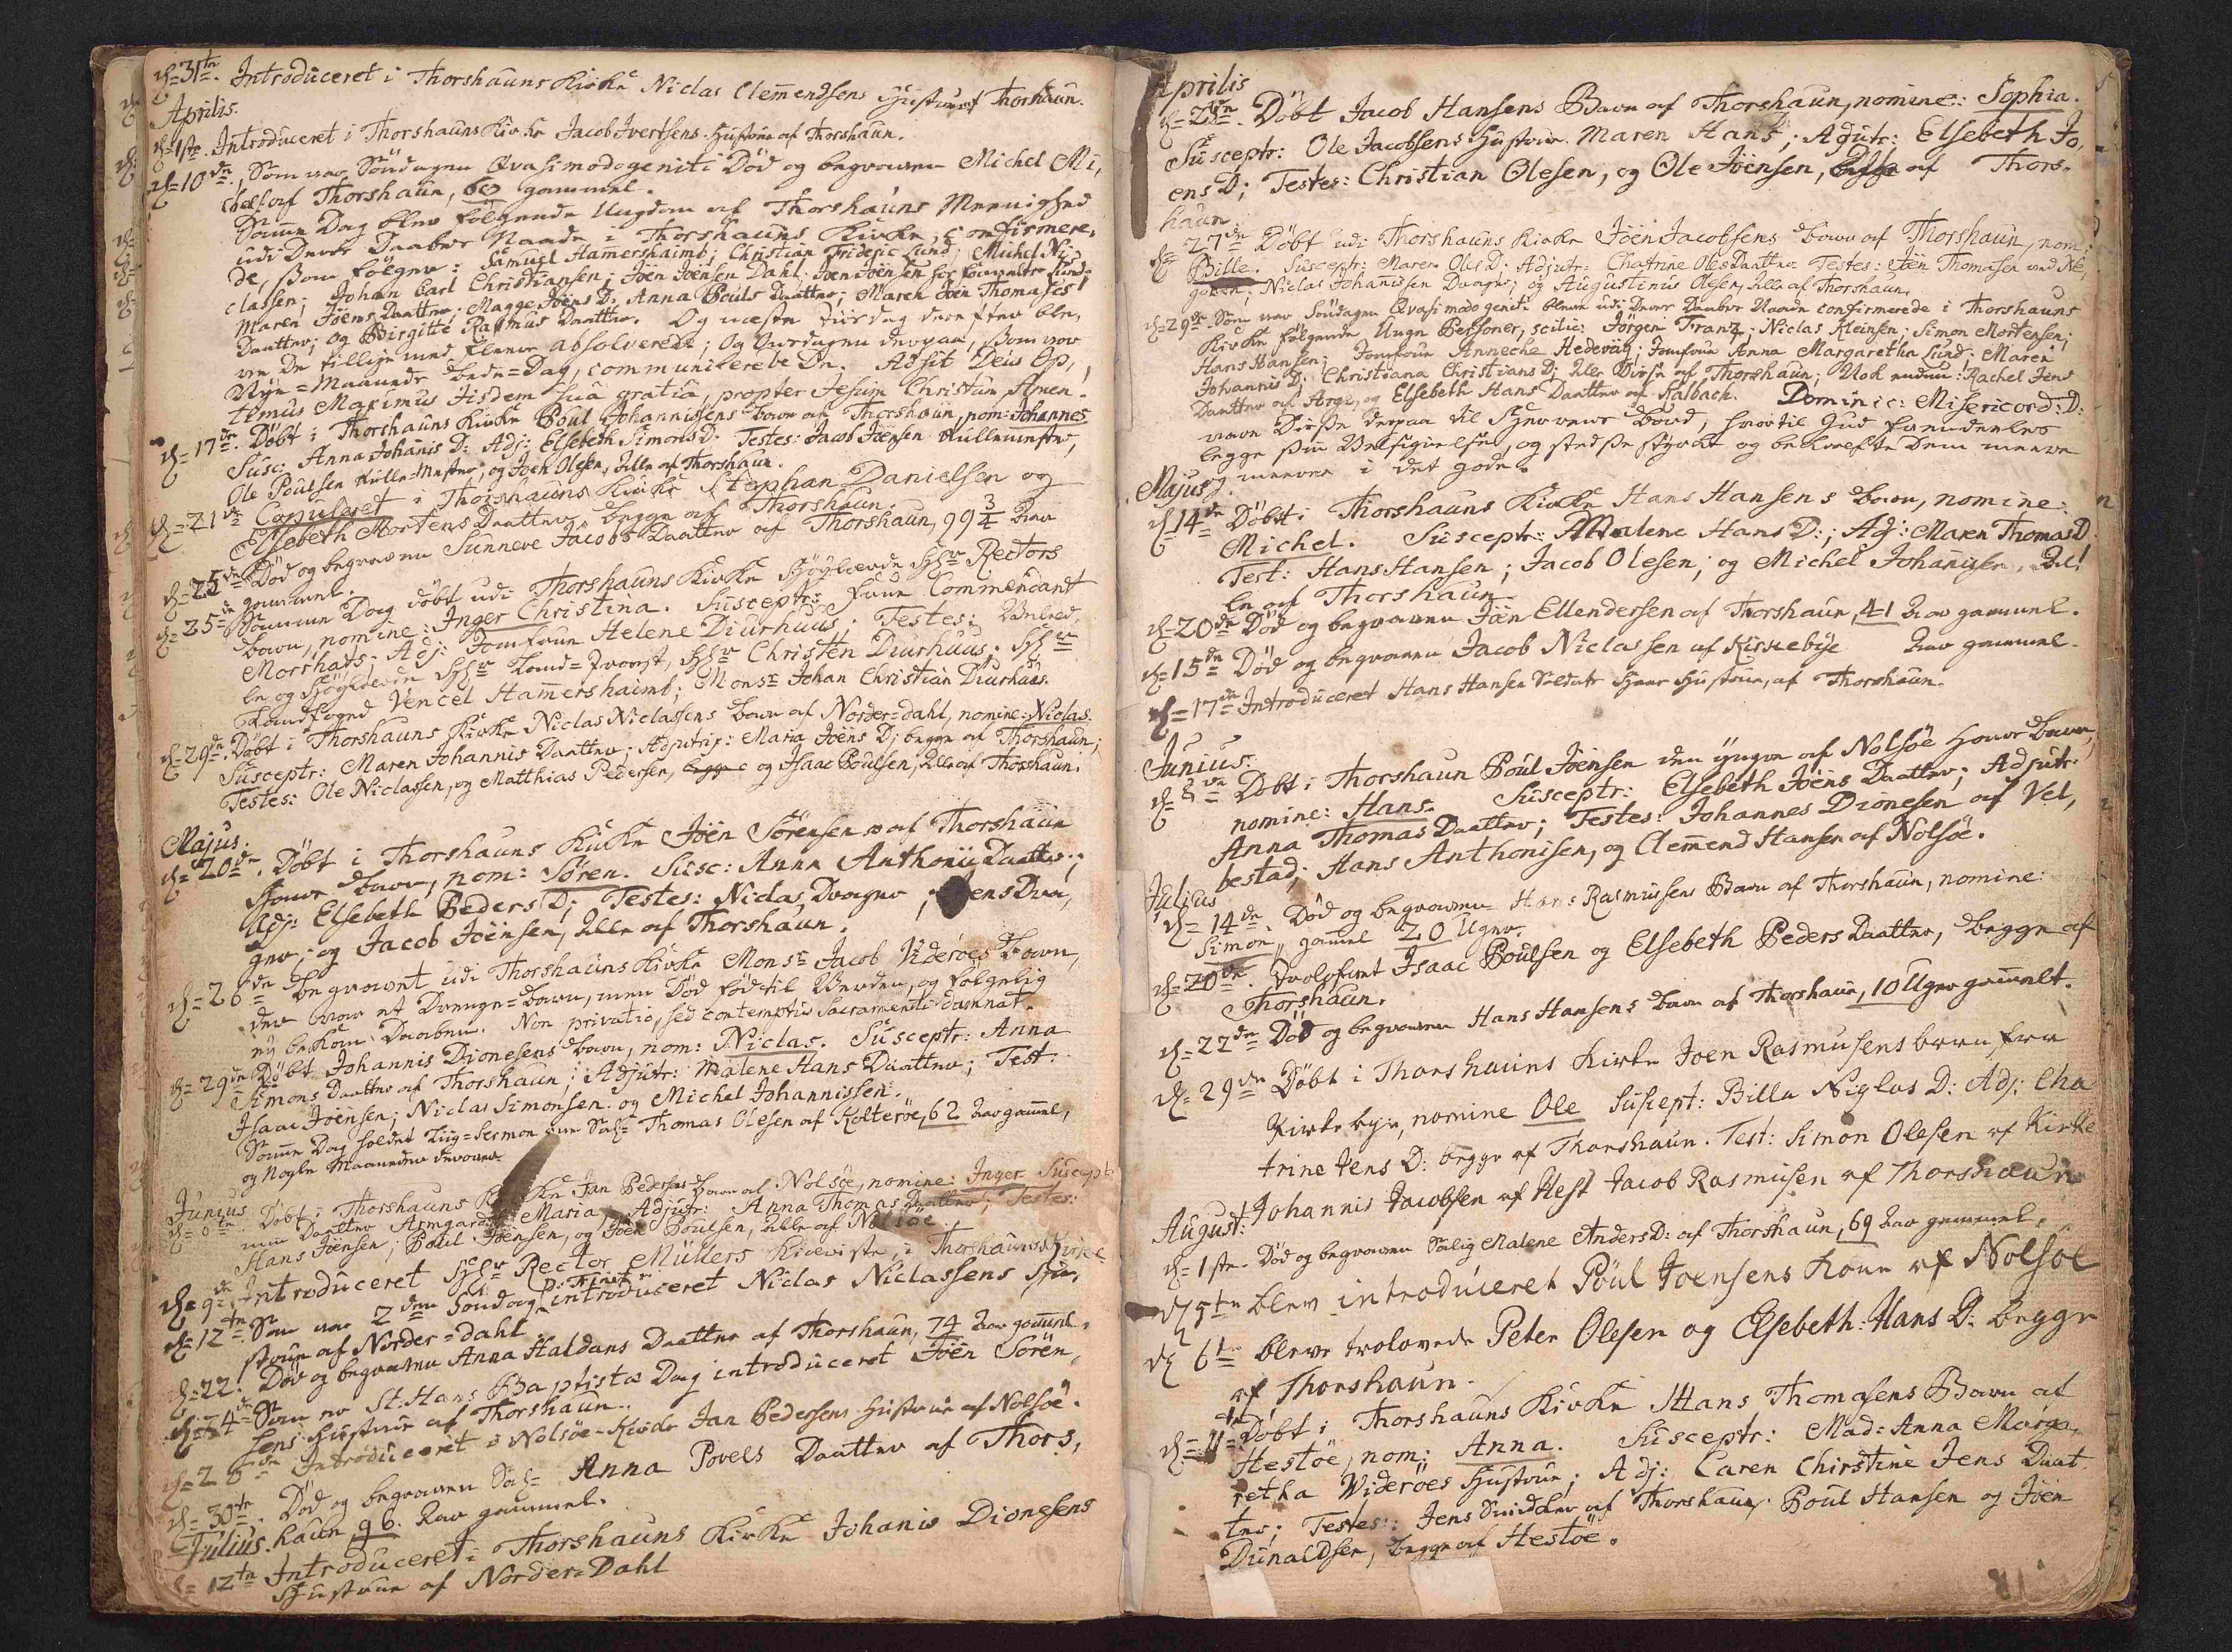 d. 31te. Introduceret i Thorshauns Kirke Niclas Clemendsens Hustrue af Thorshaun.
Aprilis.
d. 1ste. Introduceret i Thorshauns Kirke Jacob Ivertsens Hustrue af Thorshaun.
d. 10de, Som var Söndagen Qvasimodogeniti Död og begraven Michel Mi,
chels af Thorshaun, gammel.
Samme Dag blev fölgende Ungdom af Thorshauns Meenighed
udi Deres Daabes Naade i Thorshauns Kirke, confirmere,
de, som fölger: Samuel Hamershaimb; Christian Frideric Lund; Michel Ni,
classen; Johan Carl Christiansen; Joen Joensen Dahl; Joen Joensen hos Lund;
Maren Joens Daatter; Magge Joens D:, Anna Pouls Daatter; Maren Joen Thomases
Daatter; og Birgitte Rasmus Daatter. Og næste Tiisdag derefter ble,
ve De tillige med flere absolverede; Og Onsdagen derpaa, som var
Nÿe=Maaneds Bede=Dag, communicerede De. Adsit Deus Op,
timus Maximus Iisdem suâ gratiâ, propter Jesum Christum Amen!
d. 17de. Döbt i Thorshauns Kirke Poul Johannissens Barn af Thorshaun, nom: Johannes
Susc: Anna Johanis D: Adj: Elsebeth Simons D. Testes: Jacob Joensen Kullemester,
Ole Poulsen Kulle=Mester, og Joen Olesen, Alle af Thorshaun.
d. 21de Copuleret i Thorshauns Kirke Stephan Danielsen og
Elsebeth Mortens Daatter, begge af Thorshaun.
d. 25de Död og begraven Sunneve Jacobs Daatter af Thorshaun, 99 3/4 Aar
gammel.
d. 25de Samme Dag döbt udi Thorshauns Kirke Höÿlærde Hr Rectors
Barn, nomine: Inger Christina. Susceptr: Frue Commendant
Morshats; Adj: Jomfrue Helene Diurhuus; Testes: Velærd,
le og Höÿlærde Hr Land=Provst, Hr Christen Diurhuus; Hr
Landfoged Vencel Hamershaimb; Monsr Johan Christian Diurhuus.
d. 29de. Döbt i Thorshauns Kirke Niclas Niclassens Barn af Norder=dahl, nomine: Niclas.
Susceptr: Maren Johannis Daatter; Adjutrix: Maria Joens D; begge af Thorshaun;
Testes: Ole Niclassen, og Matthias Pedersen, og Isaac Poulsen, Alle af Thorshaun.
Majus.
d. 20de. Döbt i Thorshauns Kirke Joen Sörensen af Thorshaun
Hans Barn, nom: Sören. Susc: Anna Anthonii Daatter;
Adj: Elsebeth Peders D; Testes: Niclas Drager, Jens Dra,
ger; og Jacob Joensen, Alle af Thorshaun.
d. 26de begravet udi Thorshauns Kirke Monsr Jacob Videröes Barn,
der var et Drenge=Barn, men Död föd til Verden, og fölgelig
eÿ bekom Daaben. Non privatio, sed contemptus Sacramenti damnat.
d. 29de Döbt Johannis Dionesens Barn, nom: Niclas. Susceptr: Anna
Simons Daatter af Thorshaun; Adjutr: Malene Hans Daatter; Test:
Isaac Joensen; Niclas Simonsen. og Michel Johannissen.
Samme Dag holdet Liig=Sermon over Sal: Thomas Olesen af Kolteröe, 62 Aar gamel,
og Nogle Maaneder derover.
Junius
d. 6te. Döbt i Thorshauns Kirke Jan Pedersens Barn af Nolsöe, nomine: Inger Suscept
min Daatter Armgard Maria Adjutr: Anna Thomas Daatter; Testes:
Hans Joensen; Poul Joensen, og Joen Poulsen, Alle af Nolsöe.
d. 9de, Introduceret Hr Rector Müllers Kiereste, i Thorshauns Kirke
d. 12te Som var 2den Söndag p. Trinit: introduceret Niclas Niclassens Hu,
strue af Norder=dahl
d. 22. Död og begraven Anna Haldans Daatter af Thorshaun, 74 Aar gamel.
d. 24de Som er St. Hans Baptistæ Dag introduceret Joen Sören,
sens Hustrue af Thorshaun.
d. 26de Introduceret i Nolsöe-Kirke Jan Pedersens Hustrue af Nolsöe.
d. 30te. Död og begraven Sal: Anna Povels Daatter af Thors,
haun, 96. Aar gammel.
Julius.
d. 12te Introduceret i Thorshauns Kirke Johanis Dionesens
Hustrue af Norder=Dahl
Aprilis
d. 23de. Döbt Jacob Hansens Barn af Thorshaun, nomine: Sophia.
Susceptr: Ole Jacobsens Hustrue Maren Hans; Adjutr: Elsebeth Jo,
ens D; Testes: Christian Olesen, og Ole Joensen, af Thors-
haun.
d. 27de Döbt udi Thorshauns Kirke Joen Jacobsens Barn af Thorshaun, nom:
Bille. Susceptr: Maren Oles D; Adjutr: Chatrine Oles Daatter. Testes: Joen Thomasen ved
Niclas Johanissen Drager; og Augustinus Olesen, Alle af Thorshaun.
d. 29de. Som var Söndagen Qvasimodogeniti bleve udi Deres Daabes Naade confirmerede i Thorshauns
Kirke fölgende Unge Personer, scilic: Jörgen Franz; Niclas Kleinsen; Simon Mortensen;
Hans Hansen; Jomfrue Anneche Hedevig; Jomfrue Anna Margaretha Lund; Maren
Johannis D. Christiana Christians D; Alle Disse af Thorshaun; Nok endnu: Rachel Jens
Daatter af Arge, og Elsebeth Hans Daatter af Kalbach. Dominic: Misericord: D:
vare Disse derpaa til Herrens Bord, hvortil Gud fremdeles
legge sin Velsignelse, og stedse styrke og bekrefte Dem meere
og meere i det gode.
Majus
d. 14de Döbt i Thorshauns Kirke Hans Hansens Barn, nomine:
Michel. Susceptr: Malene Hans D:; Adj: Maren Thomas D.
Test: Hans Hansen; Jacob Olesen; og Michel Johanisen, Al,
le af Thorshaun.
d. 20de Död og begraven Jan Ellendersen af Thorshaun, 41 Aar gammel.
d. 15de Död og begraven Jacob Niclassen af Kirkebÿe Aar gammel.
d. 17de Introduceret Hans Hansen Soldats Hans Hustrue, af Thorshaun.
Junius.
d. 8de Döbt i Thorshaun Poul Joensen den ÿngre af Nolsöe Hans Barn,
nomine: Hans. Susceptr: Elsebeth Joens Daatter; Adjutr.
Anna Thomas Daatter; Testes: Johannes Dionesen af Vel,
bestad; Hans Anthonisen, og Clemend Hansen af Nolsöe.
Julius
d. 14de. Död og begraven Hans Rasmussens Barn af Thorshaun, nomine:
Simon, gamel 20 Uger.
d. 20de. Trolofvet Isaac Poulsen og Elsebeth Peders Daatter, begge af
Thorshaun.
d. 22de Död og begraven Hans Hansens Barn af Thorshaun, 10 Uger gamelt.
d. 29de Döbt i Thorshauns Kirke Joen Rasmusens barn fra
Kirkebÿe, nomine Ole Suscept: Billa Niglas D: Adj: Cha
trine Jens D: begge af Thorshaun. Test: Simon Olesen af Kirke
Johannis Jacobsen af Hest Jacob Rasmusen af Thorshaun
August:
d. 1ste. Död og begraven Salig Malene Anders D: af Thorshaun, 69 Aar gammel.
d. 5te blev introduceret Poul Joensens Kone af Nolsöe
d. 6te bleve trolovede Peter Olesen og Elsebeth: Hans D. begge
af Thorshaun.
d. 11te Döbt i Thorshauns Kirke Hans Thomasens Barn af
Hestöe, nom: Anna. Susceptr: Mad: Anna Marga,
retha Videröes Hustrue; Adj: Caren Chirstine Jens Daat
ter; Testes: Jens Snidcker af Thorshaun, Poul Hansen og Joen
Dunaldsen, begge af Hestöe.